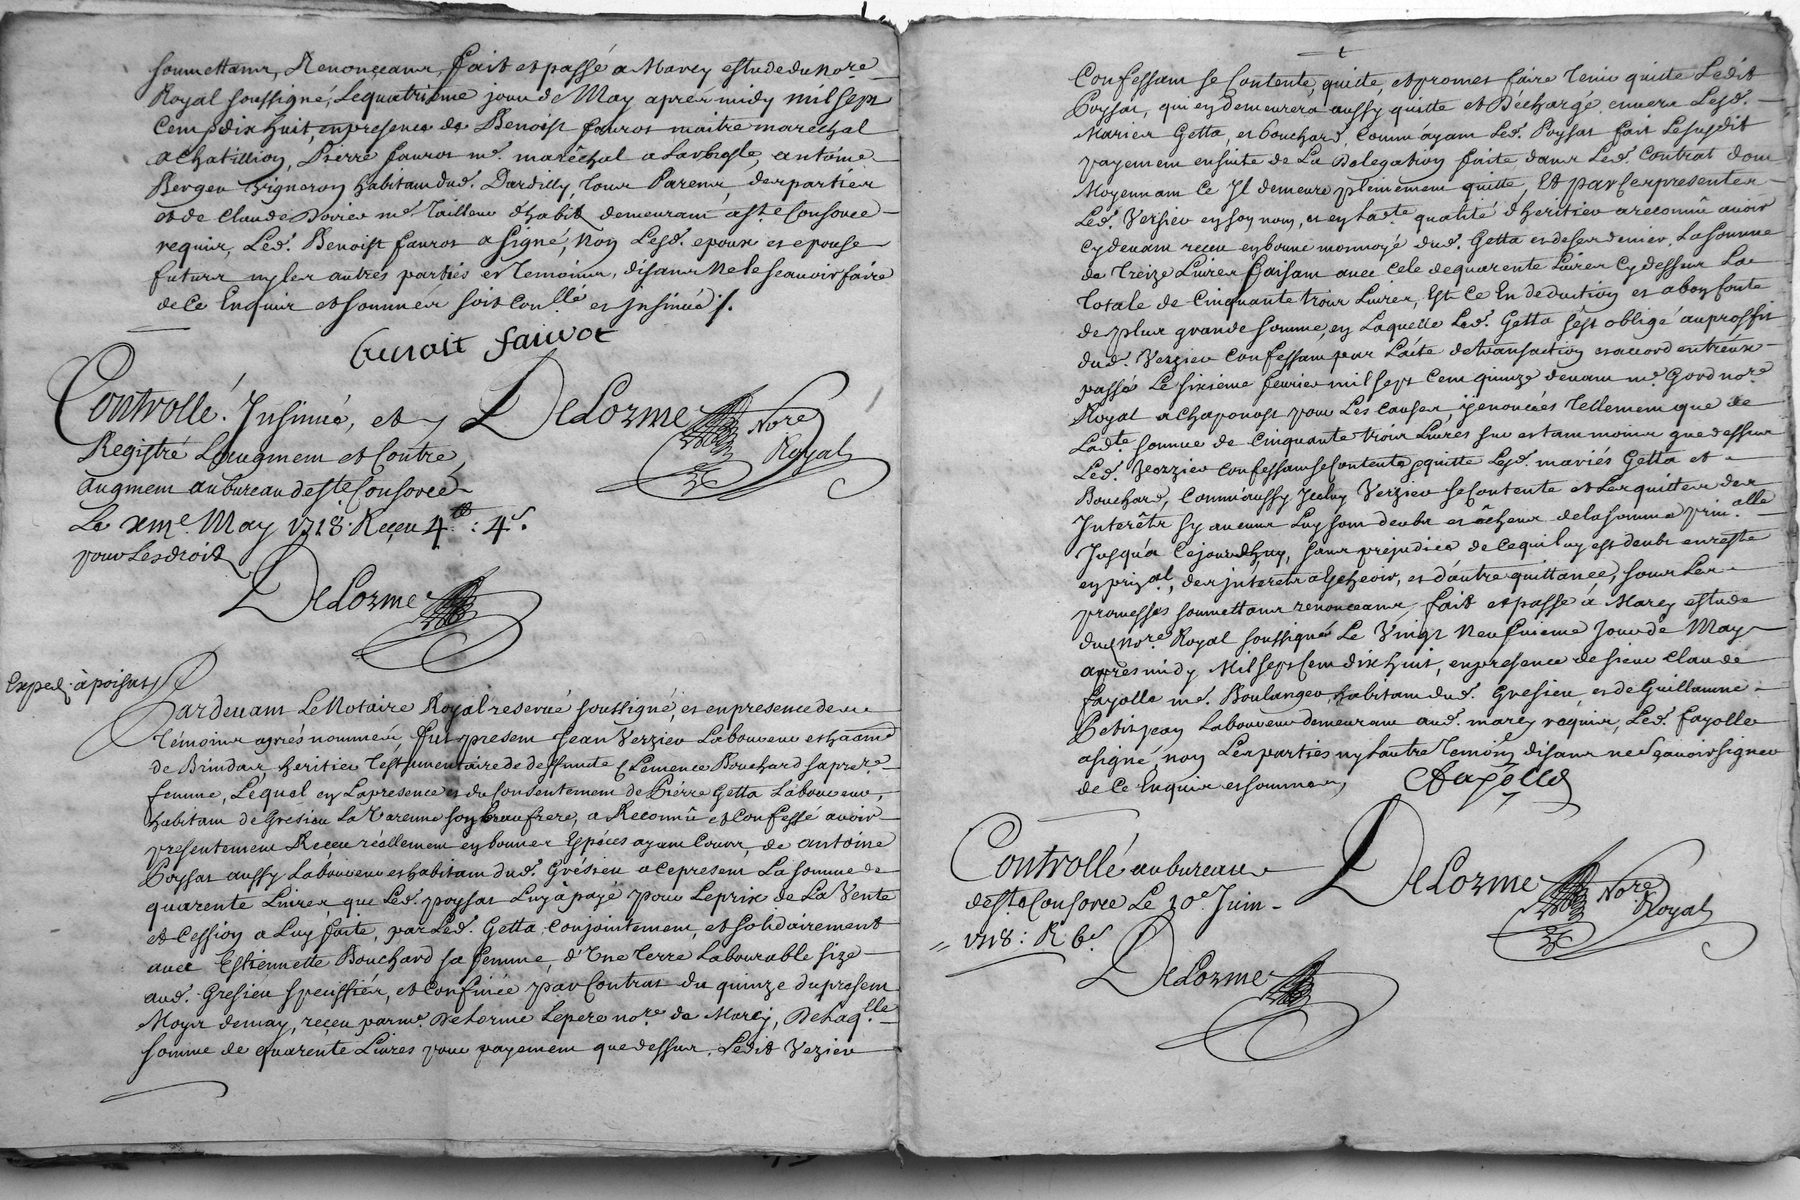 soumettans, Renonceans, fait et passé a Marcy estude du no.re
Royal soussigné, Le quatrieme jour de May apres midy mil sept
Cent dix huit, en presence de Benoist fauvot maitre marechal
a Chatillion, Pierre fauvot m.e maréchal a Larbresle, antoine
Berger vigneron habitant dud. Dardilly, tous Parens des parties
et de Claude m.e Tailleur d'habit demeurant a S.te Consorce
requis, Led. Benoist fauvot a signé, non Lesd. epoux et epouse
futurs ny les autres parties et temoins, disans ne le scavoir faire
de ce Enquis et sommés soit con.llé et insinué ./.
benoit fauvot
Controllé. Insinué, et DeLorme No.re
Registré L'augment et Contre Royal
augment au bureau de S.te Consorce
Le xme. May 1718. Receu 4.lt : 4 s.
pour Les droits
DeLorme
Exped. à poisat
Pardevant Le Notaire Royal reservé soussigné, et en presence des
témoins après nommés, fut present Jean Verzieu Laboureur et habitant
de Brindas, heritier testamentaire de deffunte Clemence Bouchard sa pre.re
femme, Lequel en La presence et du consentement de Pierre Getta Laboureur,
habitant de Gresieu La Varenne son beau frere, a Reconnû et Confessé avoir
presentement Receu réellement en bonnes Espéces ayant Cours, de antoine
Poysat aussy Laboureur et habitant dud. Grésieu a ce present La somme de
quarente Livres que Led. poysat Luy à payé pour Le prix de La Vente
et Cession a Luy faite, par Led. Getta, Conjointement, et solidairement
avec Estiennette Bouchard sa femme, d'Une Terre Labourable size
aud. Gresieu speciffiée, et Confinée par Contrat du quinze du present
Moys de may, receu par m.e DeLorme Le pere no.re de Marcy, De Laq.lle
somme de quarente Livres pour payement que dessus, Ledit Verzieu
Confessant se Contente, quitte, et promet faire tenir quitte Ledit
Poysat, qui en demeurera aussy quitte et Déchargé envers Lesd.
Mariés Getta, et bouchard, Comme ayant Led. Poysat fait Le susdit
payement ensuite de La Délégation faite dans Led. Contrat dont
Moyennant Ce Il demeure pleinement quitte, Et par Ces presentes
Led. Verzieu en son nom, et en lad.te qualité d'heritier a reconnû avoir
Cy devant receu en bonne monnoyé dud. Getta et de ses deniers, La somme
de Treize Livres faisant avec Cele de quarente Livres Cy dessus La
totale de Cinquante trois Livres, Est Ce En deduction et a bon conte
de plus grande somme, en Laquelle Led. Getta s'est obligé au proffit
dud. Verzieu Confessant par L'acte de transaction et accord entreux
passé Le sixieme fevrier mil sept Cent quinze devant m.e Gord no.re
Royal a Chaponost pour Les Causes, y enoncées tellement que de
Lad.te somme de Cinquante trois Livres sur et tant moins que dessus
Led. Verzieu Confessant se Contente quitte Lesd. mariés Getta et
Bouchard, Comm'aussy Iceluy Verzieu se Contente et Les quitte des
Interêts sy aucuns Luy sont deubs et écheus de la somme prin.alle
Jusqu'à ce jourd'huy, sans prejudice de ce qui luy est deubt en reste
en prin.al, des interets a Echeoir, et d'autre quittance, sous Les
promesses soumettans renonceans, fait et passé à Marcy estude
dud no.re Royal soussigné Le Vingt Neufvieme Jour de May
apres midy Mil sept Cent dix huit, en presence de sieur Claude
fayolle m.e Boulanger, habitant dud. Gresieu, et de Guillaume
Petitjean Laboureur demeurant aud. marcy requis, Led. fayolle
a signé, non Les parties ny L'autre temoin, disans ne Scavoir signer
de Ce Enquis et sommés, CFayolle
Controllé au bureau DeLorme No.re
de S.te Consorce Le 10.e Juin Royal
1718 : R 6 s.
DeLorme